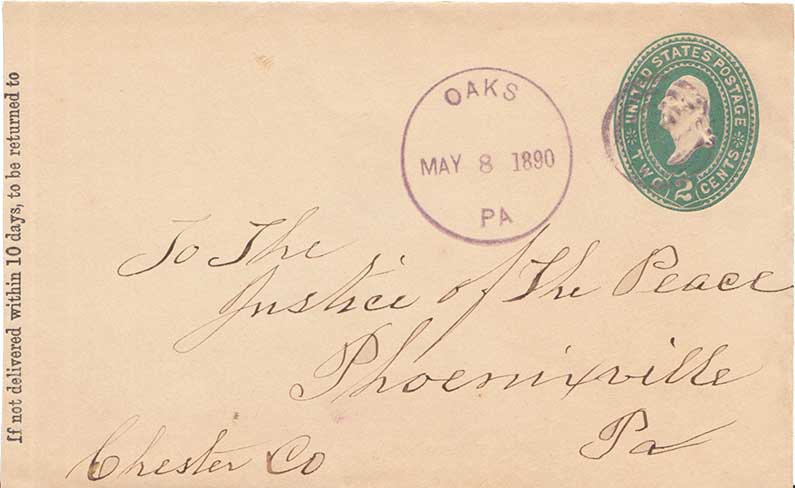 If not delivered within 10 days, to be returned to
OAKS
MAY 8 1890
PA
UNITED STATES POSTAGE
TWO 2 CENTS
To The
Justice of The Peace
Phoenixville
Pa
Chester Co